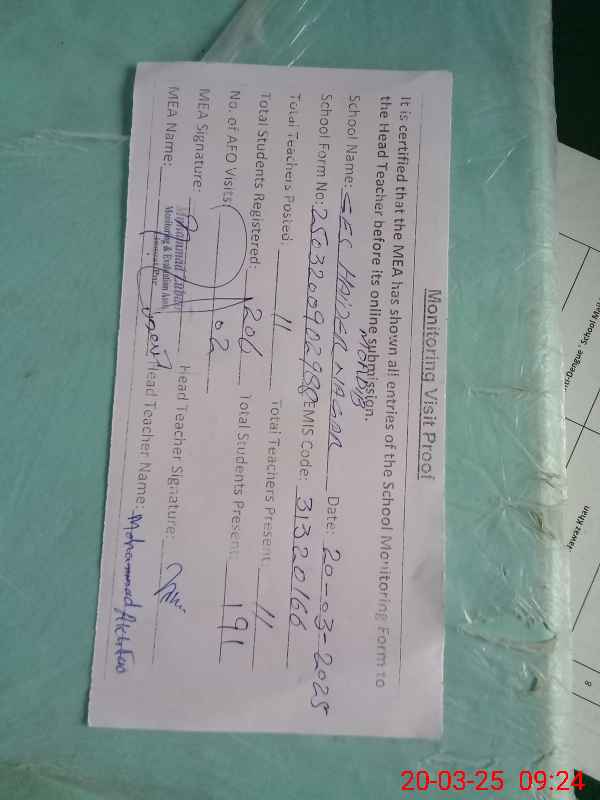 Monitoring Visit Proof
It is certified that the MEA has shown all entries of the School Monitoring Form to
the Head Teacher before its online submission.
School Name: GES HAIDER NAGAR Date: 20-03-2025
School Form No: EMIS Code: 31320166
Total Teachers Posted: 11 Total Teachers Present: 11
Total Students Registered: 206 Total Students Present: 191
No. of AEO Visits: 02
MEA Signature: Head Teacher Signature:
Monitoring & Evaluation Asstt.
MEA Name: Head Teacher Name: Mohammad Akhtar
School
Dengue
Nawaz Khan
8
20-03-25 09:24